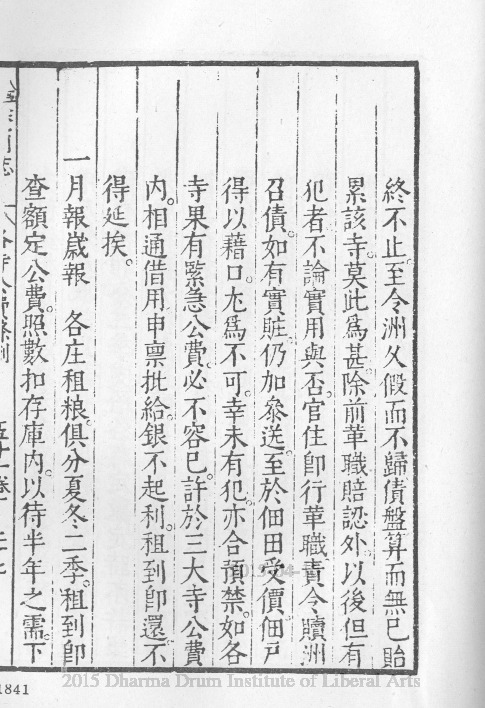 終不止。至令洲久假而不歸。債盤算而無已。貽
累該寺。莫此為甚。除前革職賠認外。以後但有
犯者。不論實用與否。官住卽行革職。責令贖洲
召債。如有實賍。仍加參送。至於佃田受價。佃戶
得以藉口。尤為不可。幸未有犯。亦合預禁。如各
寺果有緊急公費。必不容已。許於三大寺公費
內。相通借用。申稟批給。銀不起利。租到卽還。不
得延挨。
一月報歲報　各庄租粮。俱分夏冬二季。租到卽
查額定公費。照數扣存庫內。以待半年之需。下
志　各寺公費條例　五十一卷
1841
2015 Dharma Drum Institute of Liberal Arts